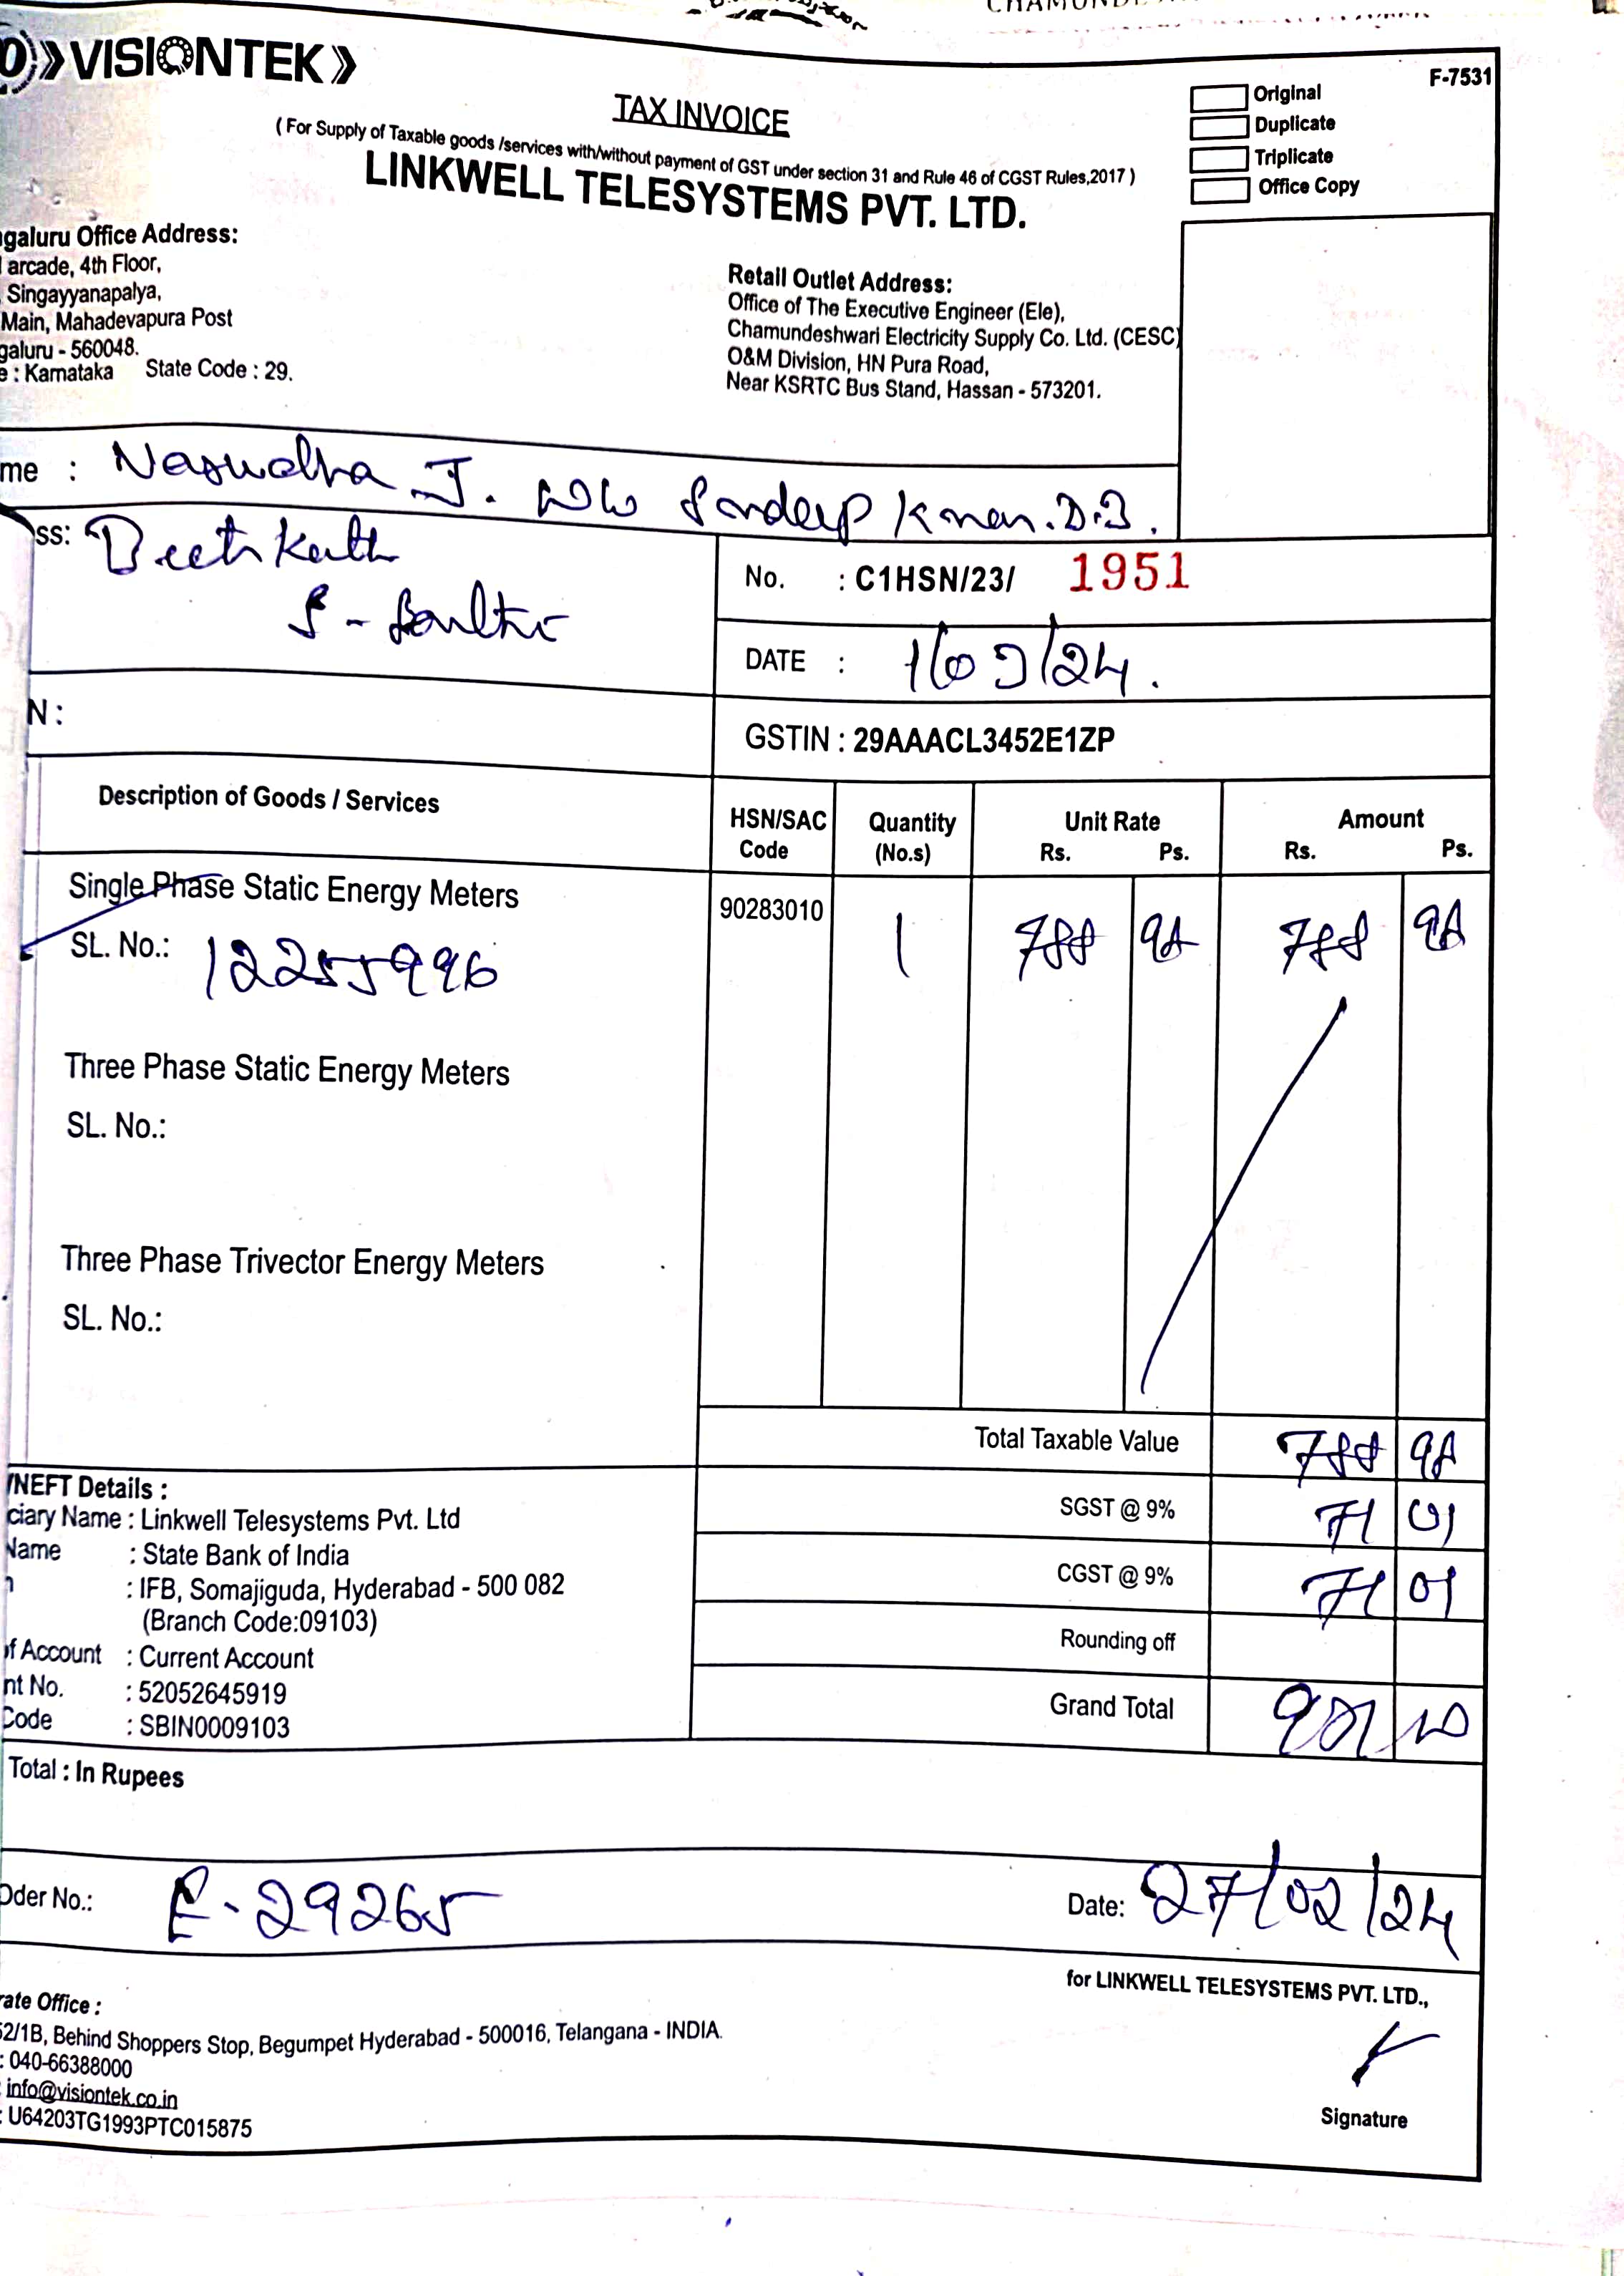 VISIONTEK
F-7531
TAX INVOICE
Original
Duplicate
Triplicate
Office Copy
( For Supply of Taxable goods /services with/without payment of GST under section 31 and Rule 46 of CGST Rules,2017 )
LINKWELL TELESYSTEMS PVT. LTD.
galuru Office Address:
arcade, 4th Floor,
Singayyanapalya,
Main, Mahadevapura Post
galuru - 560048.
e : Karnataka State Code : 29.
Retail Outlet Address:
Office of The Executive Engineer (Ele),
Chamundeshwari Electricity Supply Co. Ltd. (CESC)
O&M Division, HN Pura Road,
Near KSRTC Bus Stand, Hassan - 573201.
me : J.
ss:
No. : C1HSN/23/ 1951
DATE : 1/03/24.
N :
GSTIN : 29AAACL3452E1ZP
Description of Goods / Services
HSN/SAC Code
Quantity (No.s)
Unit Rate
Rs. Ps.
Amount
Rs. Ps.
Single Phase Static Energy Meters
90283010 1 788 98 788 98
SL. No.: 12255996
Three Phase Static Energy Meters
SL. No.:
Three Phase Trivector Energy Meters
SL. No.:
Total Taxable Value 788 98
SGST @ 9% 71 01
CGST @ 9% 71 01
Rounding off
Grand Total
/NEFT Details :
ciary Name : Linkwell Telesystems Pvt. Ltd
Name : State Bank of India
: IFB, Somajiguda, Hyderabad - 500 082
(Branch Code:09103)
of Account : Current Account
nt No. : 52052645919
Code : SBIN0009103
Total : In Rupees
Oder No.: E-29265
Date: 27/02/24
for LINKWELL TELESYSTEMS PVT. LTD.,
Signature
rate Office :
52/1B, Behind Shoppers Stop, Begumpet Hyderabad - 500016, Telangana - INDIA.
: 040-66388000
: info@visiontek.co.in
: U64203TG1993PTC015875